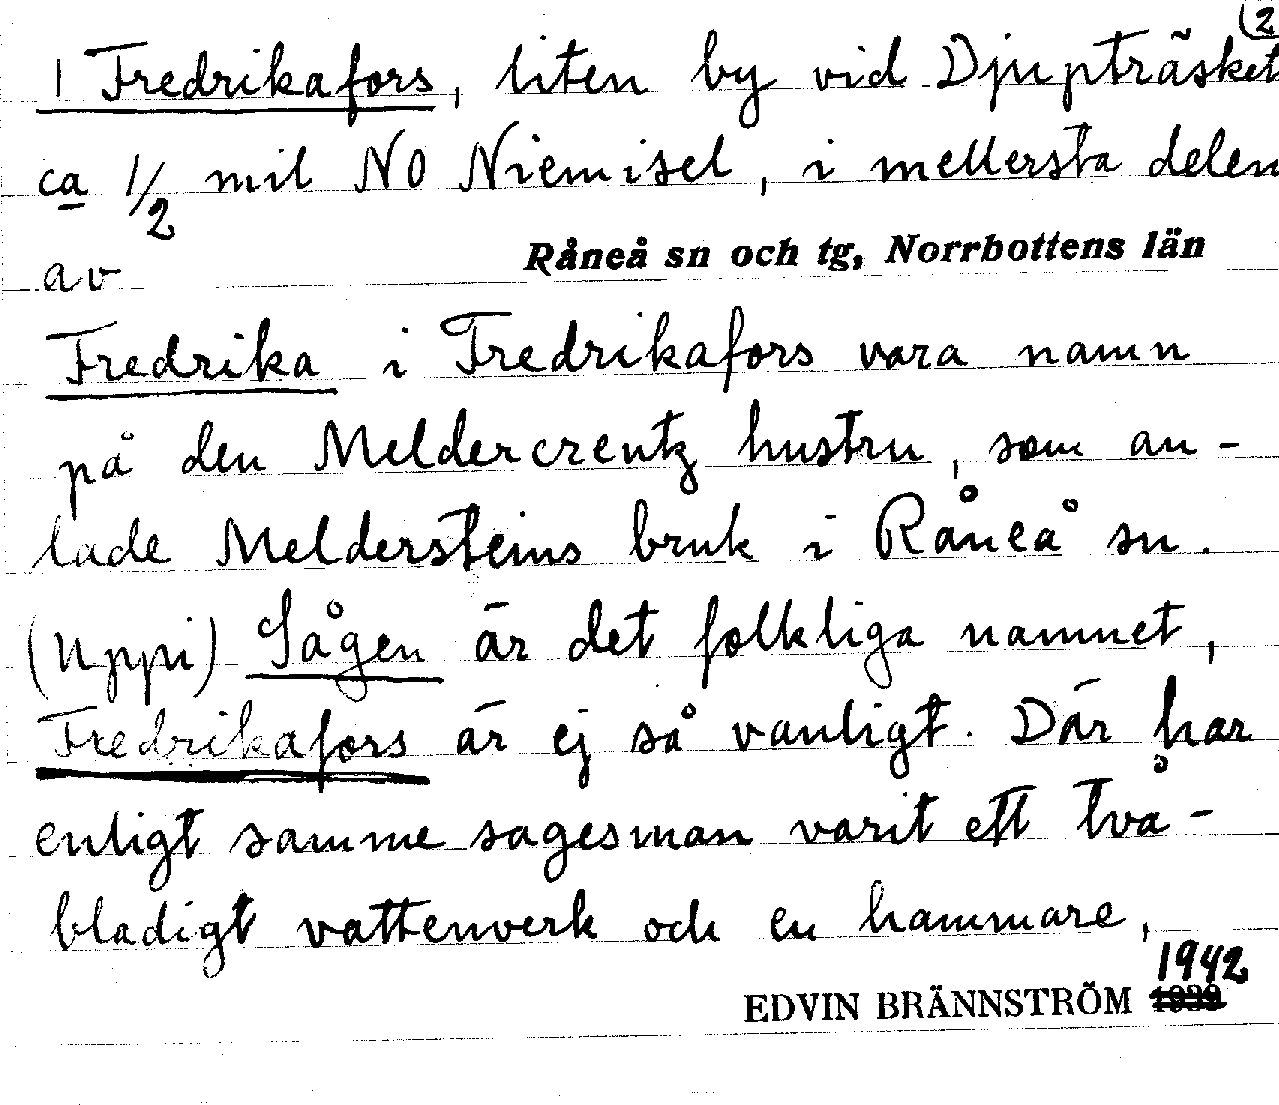 (2
1 Fredrikafors, liten by vid Djupträsket
ca 1/2 mil NO Niemisel, i mellersta delen
av Råneå sn och tg, Norrbottens län
Fredrika i Fredrikafors vara namn
på den Meldercreutz hustru, som an-
lade Meldersteins bruk i Råneå sn.
(uppi) Sågen är det folkliga namnet,
Fredrikafors är ej så vanligt. Där har
enligt samme sagesman varit ett två-
bladigt vattenverk och en hammare,
1942
EDVIN BRÄNNSTRÖM 1939